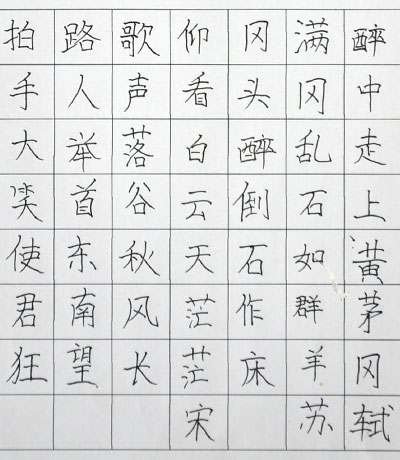 醉中走上黄茅冈
满冈乱石如群羊
冈头醉倒石作床
仰看白云天茫茫
歌声落谷秋风长
路人举首东南望
拍手大笑使君狂
宋 苏轼